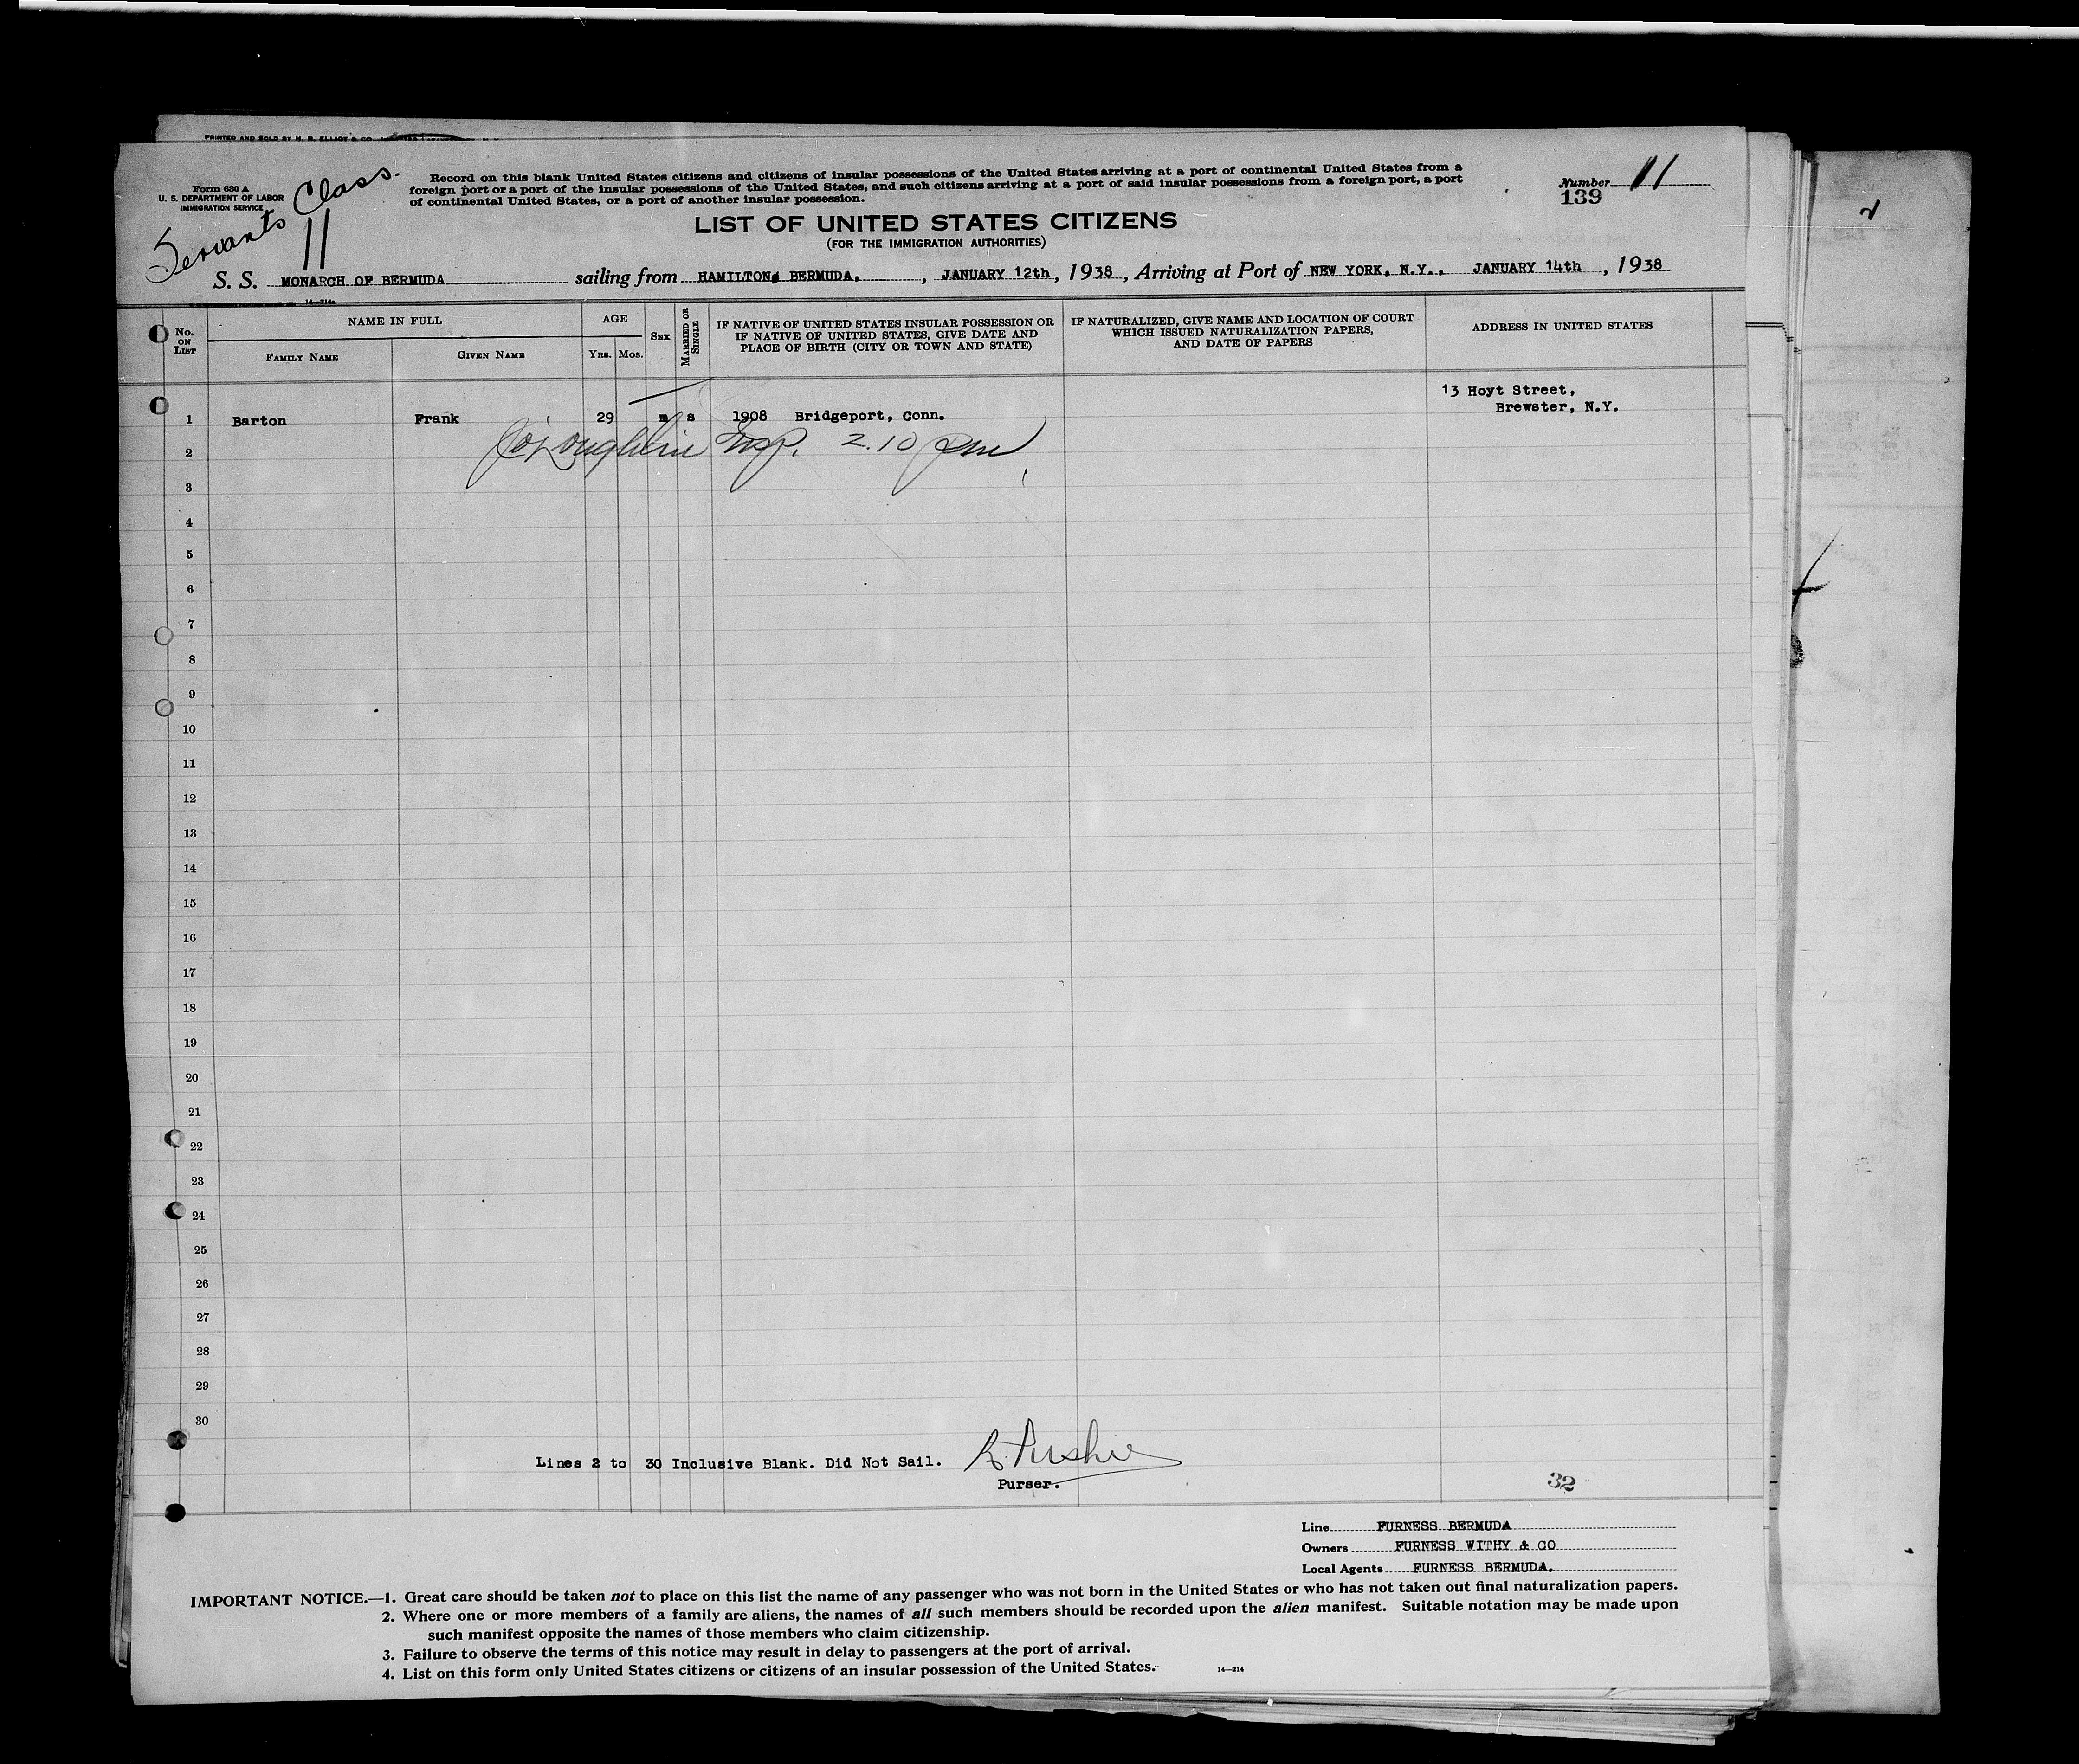 PRINTED AND SOLD BY H. R. ELLIOT & CO
Form 630 A
U. S. DEPARTMENT OF LABOR
IMMIGRATION SERVICE
Servants Class.
11
Record on this blank United States citizens and citizens of insular possessions of the United States arriving at a port of continental United States from a
foreign port or a port of the insular possessions of the United States, and such citizens arriving at a port of said insular possessions from a foreign port, a port
of continental United States, or a port of another insular possession.
Number 11
139
LIST OF UNITED STATES CITIZENS
(FOR THE IMMIGRATION AUTHORITIES)
S. S. MONARCH OF BERMUDA sailing from HAMILTON, BERMUDA, , JANUARY 12th, 1938, Arriving at Port of NEW YORK, N.Y., JANUARY 14th, 1938
14—214a
No. ON LIST
NAME IN FULL
FAMILY NAME
GIVEN NAME
AGE
YRS. MOS.
SEX
MARRIED OR SINGLE
IF NATIVE OF UNITED STATES INSULAR POSSESSION OR
IF NATIVE OF UNITED STATES, GIVE DATE AND
PLACE OF BIRTH (CITY OR TOWN AND STATE)
IF NATURALIZED, GIVE NAME AND LOCATION OF COURT
WHICH ISSUED NATURALIZATION PAPERS,
AND DATE OF PAPERS
ADDRESS IN UNITED STATES
13 Hoyt Street,
Brewster, N.Y.
1 Barton Frank 29 m s 1908 Bridgeport, Conn.
2 Insp. 2.10 pm
3
4
5
6
7
8
9
10
11
12
13
14
15
16
17
18
19
20
21
22
23
24
25
26
27
28
29
30
Lines 2 to 30 Inclusive Blank. Did Not Sail.
Purser.
32
Line FURNESS BERMUDA
Owners FURNESS WITHY & CO
Local Agents FURNESS BERMUDA.
IMPORTANT NOTICE.—1. Great care should be taken not to place on this list the name of any passenger who was not born in the United States or who has not taken out final naturalization papers.
2. Where one or more members of a family are aliens, the names of all such members should be recorded upon the alien manifest. Suitable notation may be made upon
such manifest opposite the names of those members who claim citizenship.
3. Failure to observe the terms of this notice may result in delay to passengers at the port of arrival.
4. List on this form only United States citizens or citizens of an insular possession of the United States.
14—214